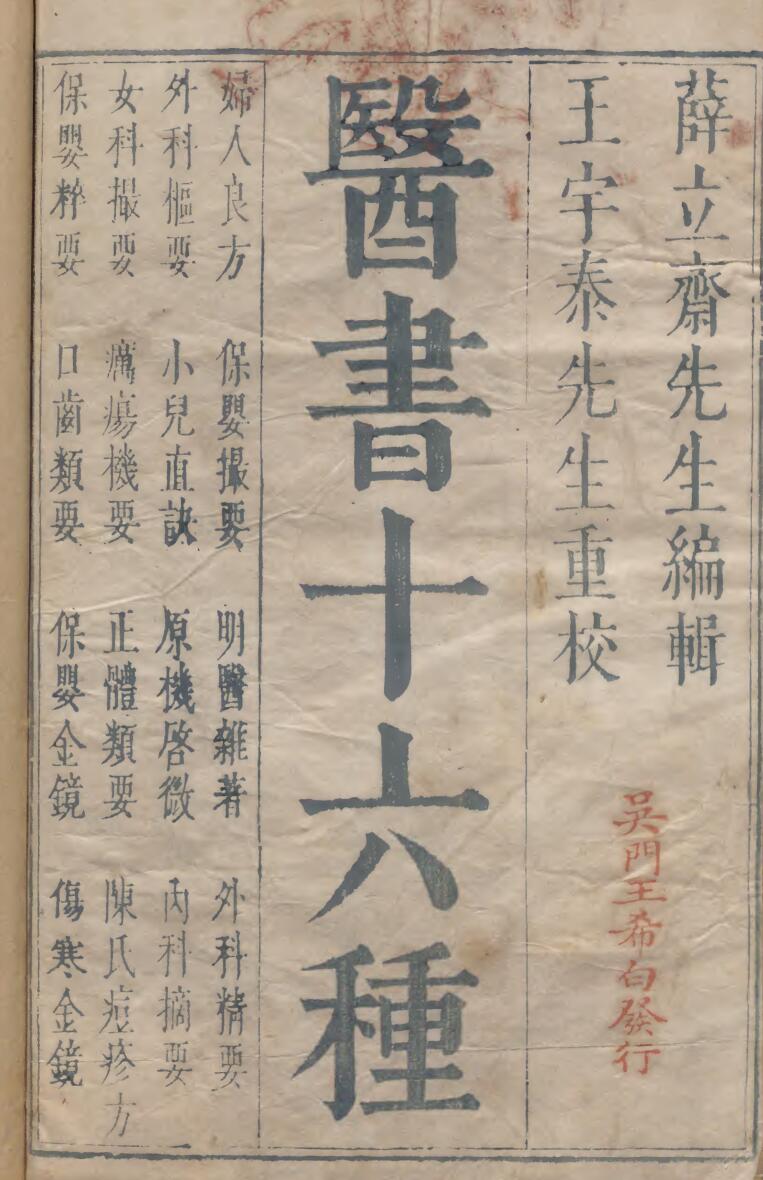 薛立齋先生編輯
王宇泰先生重校
吳門王希白發行
醫書十六種
婦人良方 保嬰撮要 明醫雜著 外科精要
外科樞要 小兒直訣 原機啓微 內科摘要
女科撮要 癘瘍機要 正體類要 陳氏痘疹方
保嬰粹要 口齒類要 保嬰金鏡 傷寒金鏡